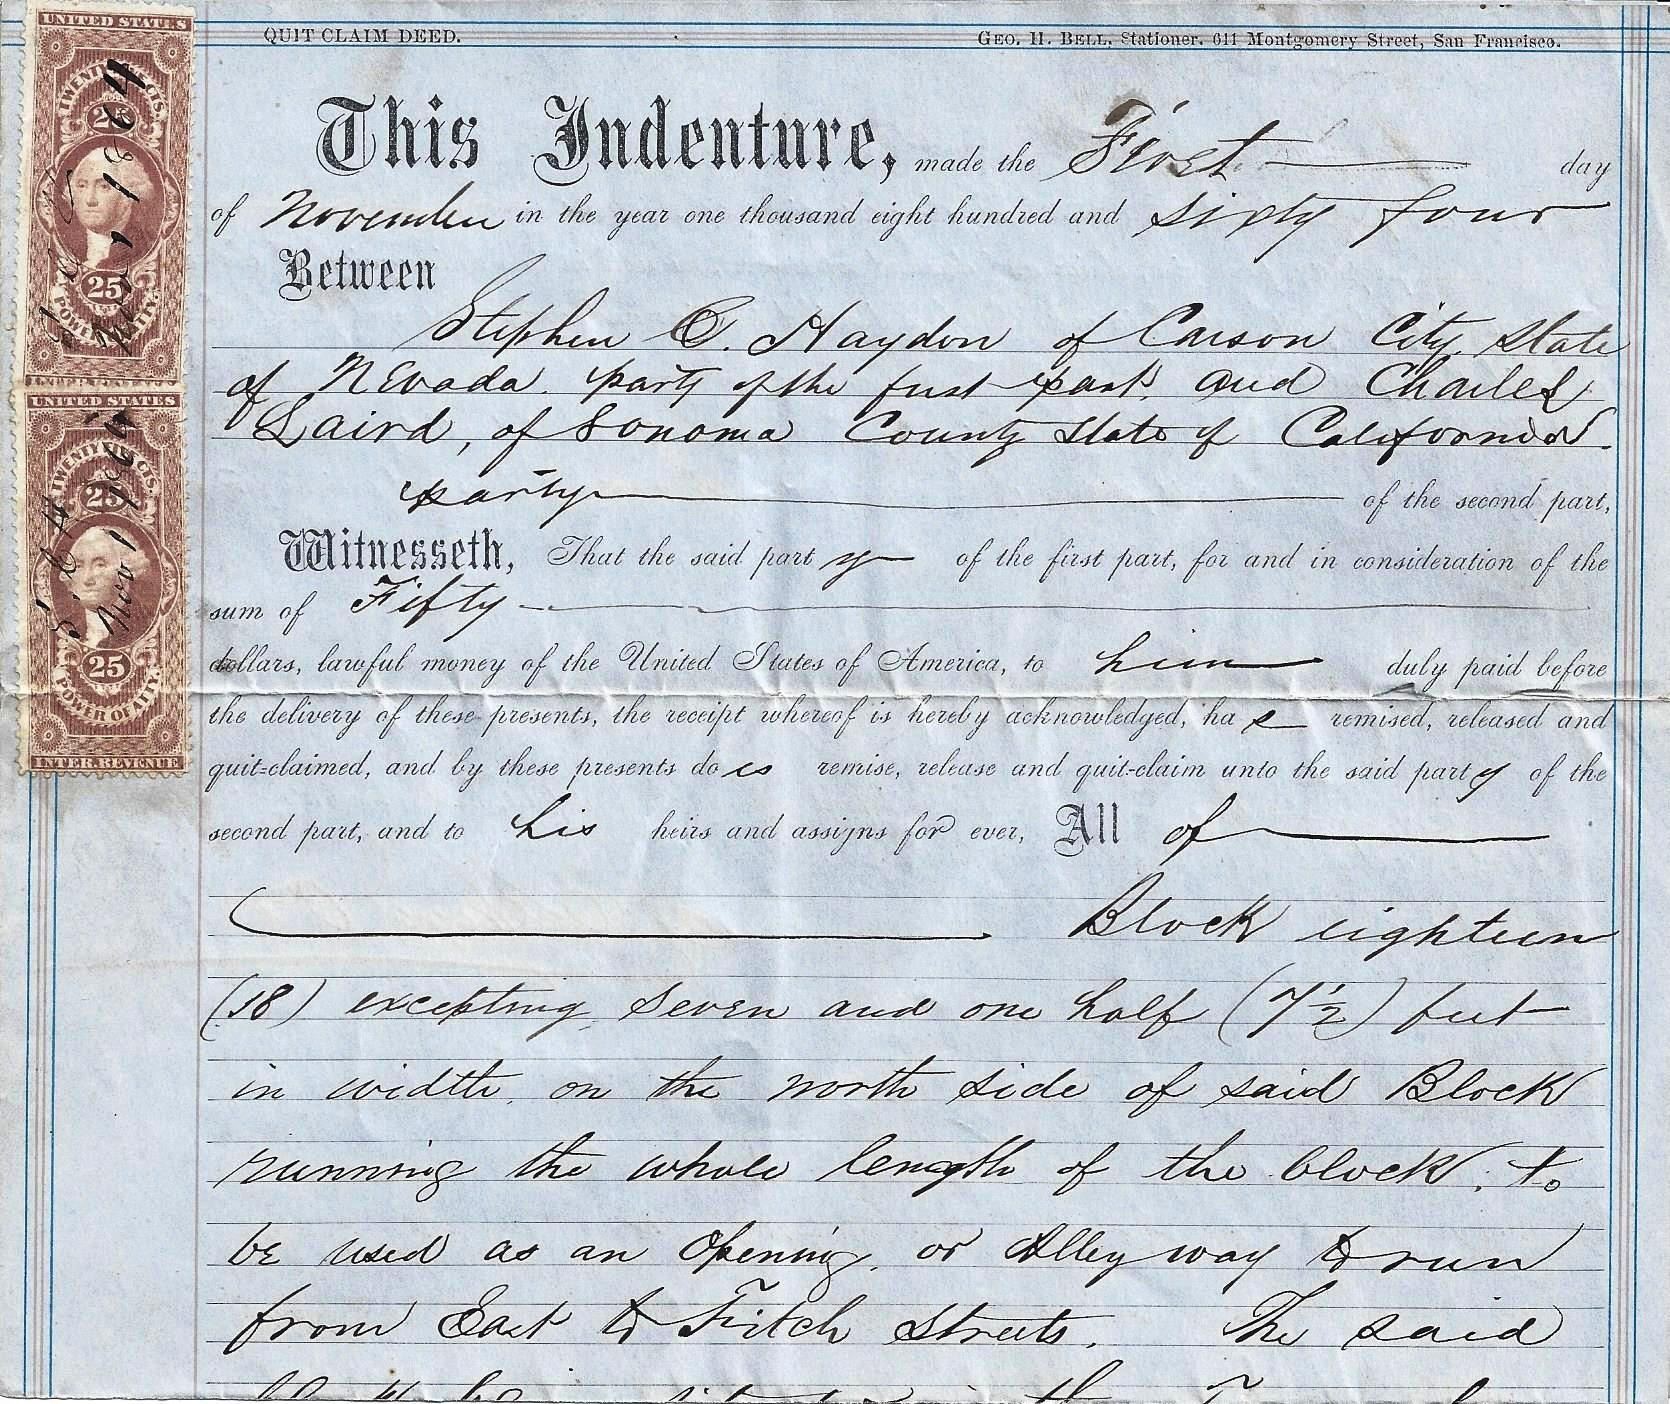 UNITED STATES
TWENTY FIVE CTS.
25
25
POWER OF ATTY.
INTER. REVENUE
UNITED STATES
TWENTY FIVE CTS.
25
S. C. H.
Nov 1
25
POWER OF ATTY.
INTER. REVENUE
QUIT CLAIM DEED.
GEO. H. BELL, Stationer, 611 Montgomery Street, San Francisco.
This Indenture, made the First day
of November in the year one thousand eight hundred and sixty four
Between
Stephen C. Haydon of Carson City, State
of Nevada. party of the first part, and Charles
Laird, of Sonoma County State of California
party of the second part,
Witnesseth, That the said party of the first part, for and in consideration of the
sum of Fifty
dollars, lawful money of the United States of America, to him duly paid before
the delivery of these presents, the receipt whereof is hereby acknowledged, has remised, released and
quit-claimed, and by these presents does remise, release and quit-claim unto the said party of the
second part, and to his heirs and assigns for ever, All of
Block eighteen
(18) excepting seven and one half (7½) feet
in width, on the north side of said Block
running the whole length of the block, to
be used as an opening, or Alley way to run
from East to Fitch Streets. The said